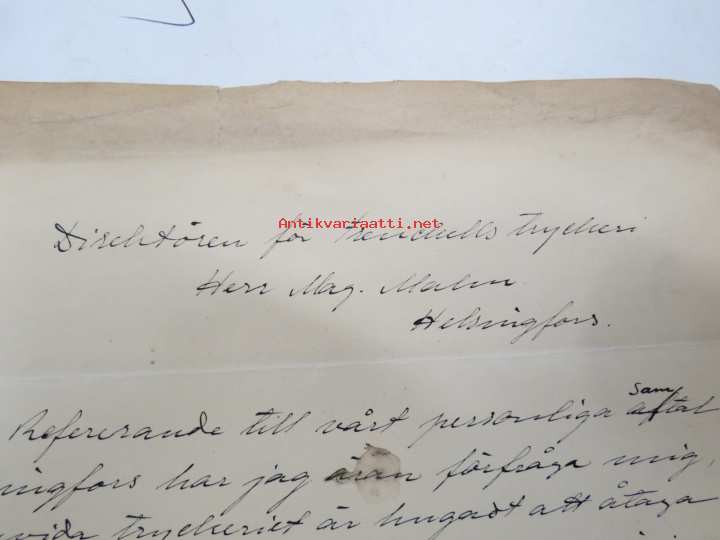 Antikvariaatti.net
Direktören för Frenckells tryckeri
Herr Mag. Malm.
Helsingfors.
sam
Refererande till vårt personliga aftal
ingfors har jag äran förfråga mig,
vida tryckeriet är hugadt att åtaga